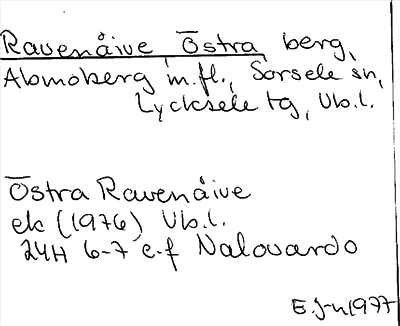 Ravenåive, Östra, berg,
Abmoberg m.fl., Sorsele sn,
Lycksele tg, Vb.l.
Östra Ravenåive
ek (1976) Vb.l.
24H 6-7 e-f Nalovardo
E. J-n 1977